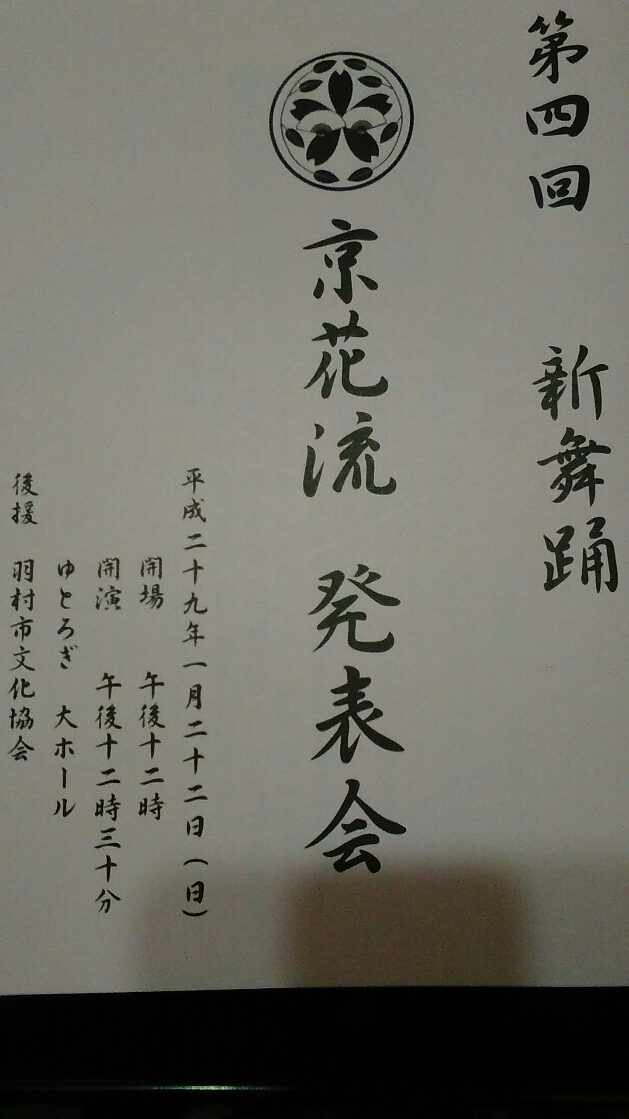 第四回 新舞踊
京花流 発表会
平成二十九年一月二十二日(日)
開場 午後十二時
開演 午後十二時三十分
ゆとろぎ 大ホール
後援 羽村市文化協会